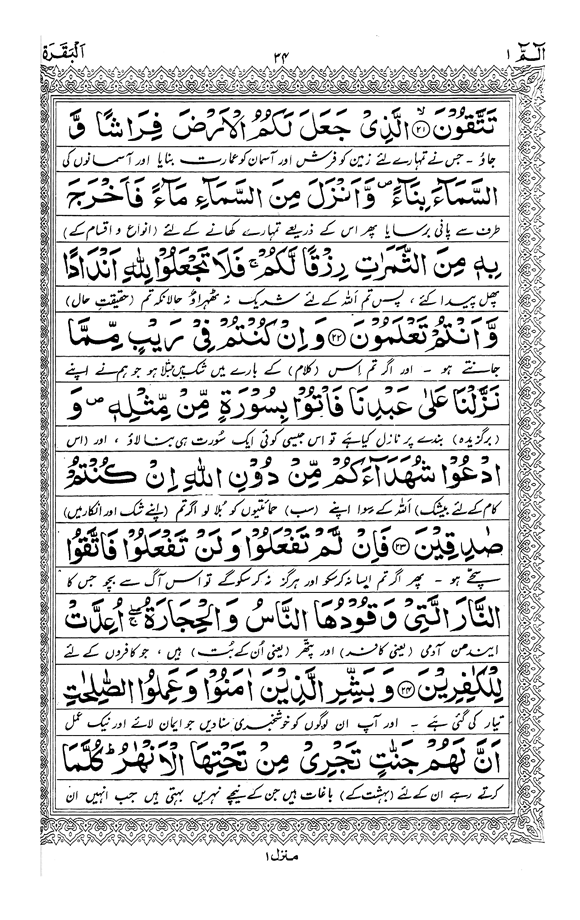 الٓـمّٓ ۱ ۲۴ اَلْبَقَرَة
تَتَّقُوْنَ ﴿۲۱﴾ۙ الَّذِیْ جَعَلَ لَكُمُ الْاَرْضَ فِرَاشًا وَّ
جاؤ - جس نے تمہارے لئے زمین کو فرش اور آسمان کو عمارت بنایا اور آسمانوں کی
السَّمَآءَ بِنَآءً ۪ وَّ اَنْزَلَ مِنَ السَّمَآءِ مَآءً فَاَخْرَجَ
طرف سے پانی برسایا پھر اس کے ذریعے تمہارے کھانے کے لئے (انواع و اقسام کے)
بِهٖ مِنَ الثَّمَرٰتِ رِزْقًا لَّكُمْ ۚ فَلَا تَجْعَلُوْا لِلّٰهِ اَنْدَادًا
پھل پیدا کئے ، پس تم اللہ کے لئے شریک نہ ٹھہراؤ حالانکہ تم (حقیقتِ حال)
وَّ اَنْتُمْ تَعْلَمُوْنَ ﴿۲۲﴾ وَ اِنْ كُنْتُمْ فِیْ رَیْبٍ مِّمَّا
جانتے ہو - اور اگر تم اِس (کلام) کے بارے میں شک میں مبتلا ہو جو ہم نے اپنے
نَزَّلْنَا عَلٰی عَبْدِنَا فَاْتُوْا بِسُوْرَةٍ مِّنْ مِّثْلِهٖ ۪ وَ
(برگزیدہ) بندے پر نازل کیا ہے تو اس جیسی کوئی ایک سُورت ہی بنا لاؤ ، اور (اس
ادْعُوْا شُهَدَآءَكُمْ مِّنْ دُوْنِ اللّٰهِ اِنْ كُنْتُمْ
کام کے لئے بیشک) اللہ کے سوا اپنے (سب) حمائتیوں کو بُلا لو اگر تم (اپنے شک اور انکار میں)
صٰدِقِیْنَ ﴿۲۳﴾ فَاِنْ لَّمْ تَفْعَلُوْا وَ لَنْ تَفْعَلُوْا فَاتَّقُوا
سچے ہو - پھر اگر تم ایسا نہ کر سکو اور ہرگز نہ کر سکو گے تو اس آگ سے بچو جس کا
النَّارَ الَّتِیْ وَ قُوْدُهَا النَّاسُ وَ الْحِجَارَةُ ۖۚ اُعِدَّتْ
ایندھن آدمی (یعنی کافر) اور پتھر (یعنی اُن کے بُت) ہیں ، جو کافروں کے لئے
لِلْكٰفِرِیْنَ ﴿۲۴﴾ وَ بَشِّرِ الَّذِیْنَ اٰمَنُوْا وَ عَمِلُوا الصّٰلِحٰتِ
تیار کی گئی ہے - اور آپ ان لوگوں کو خوشخبری سنا دیں جو ایمان لائے اور نیک عمل
اَنَّ لَهُمْ جَنّٰتٍ تَجْرِیْ مِنْ تَحْتِهَا الْاَنْهٰرُ ؕ كُلَّمَا
کرتے رہے ان کے لئے (بہشت کے) باغات ہیں جن کے نیچے نہریں بہتی ہیں جب انہیں ان
منزل ۱